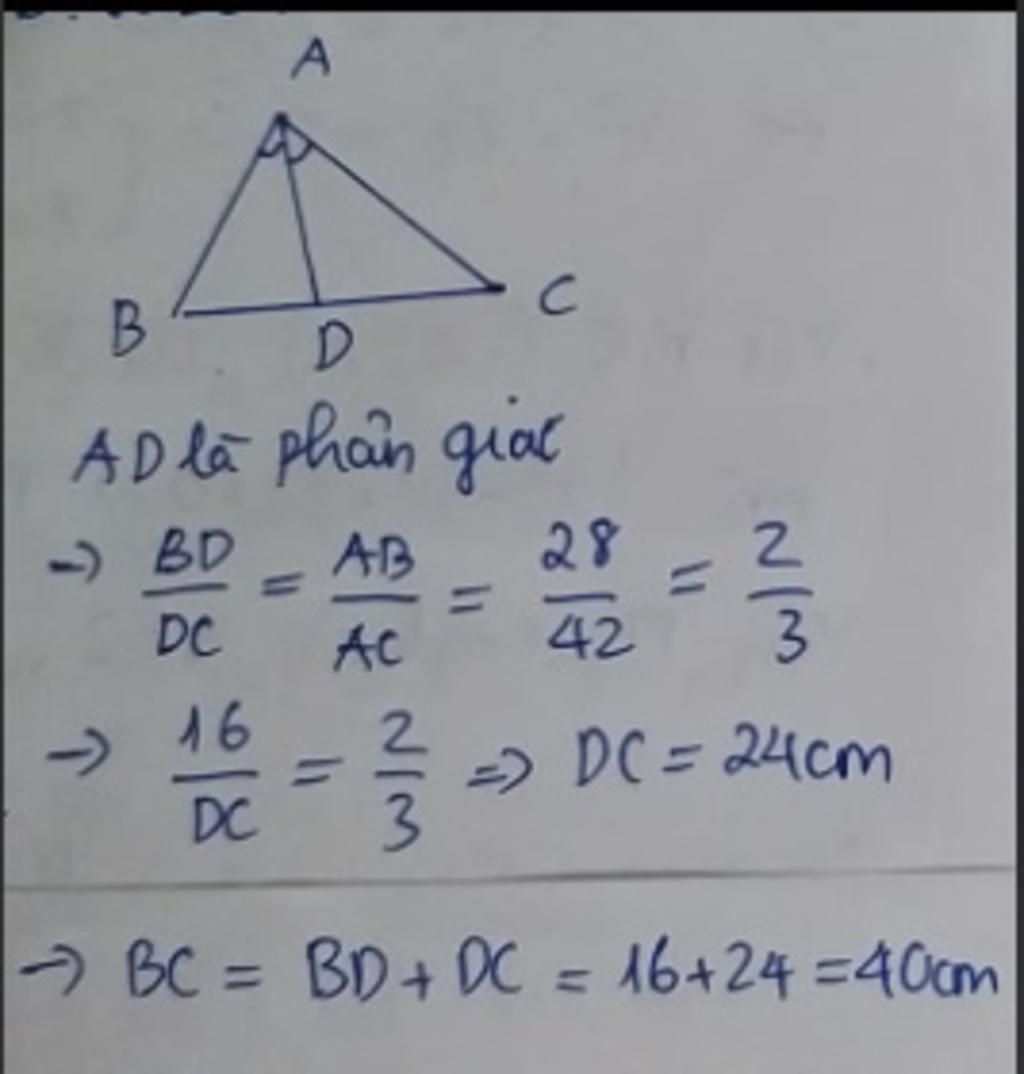 A
B
D
C
AD là phân giác
→ BD/DC = AB/AC = 28/42 = 2/3
→ 16/DC = 2/3 => DC = 24cm
→ BC = BD + DC = 16+24 = 40cm